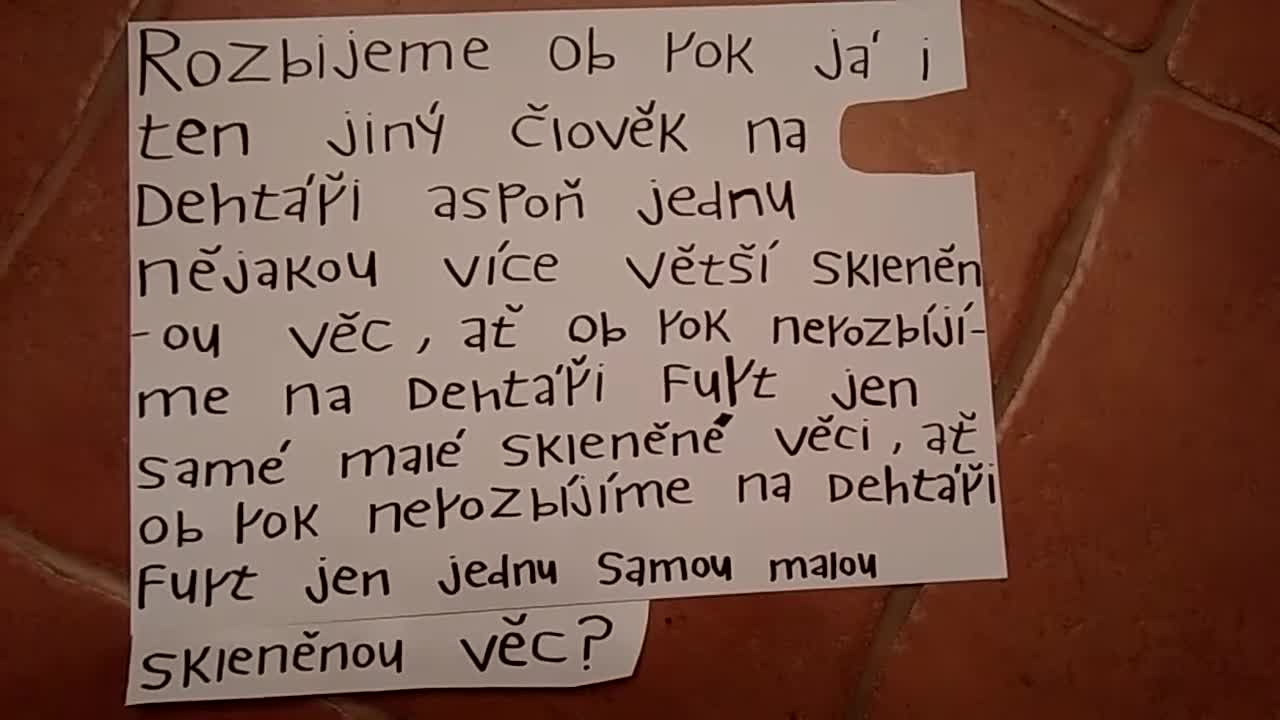 Rozbijeme ob rok já i
ten jiný člověk na
Dehtáři aspoň jednu
nějakou více větší skleněn
-ou věc, ať ob rok nerozbíjí-
me na Dehtáři furt jen
samé malé skleněné věci, ať
ob rok nerozbíjíme na Dehtáři
furt jen jednu samou malou
skleněnou věc?